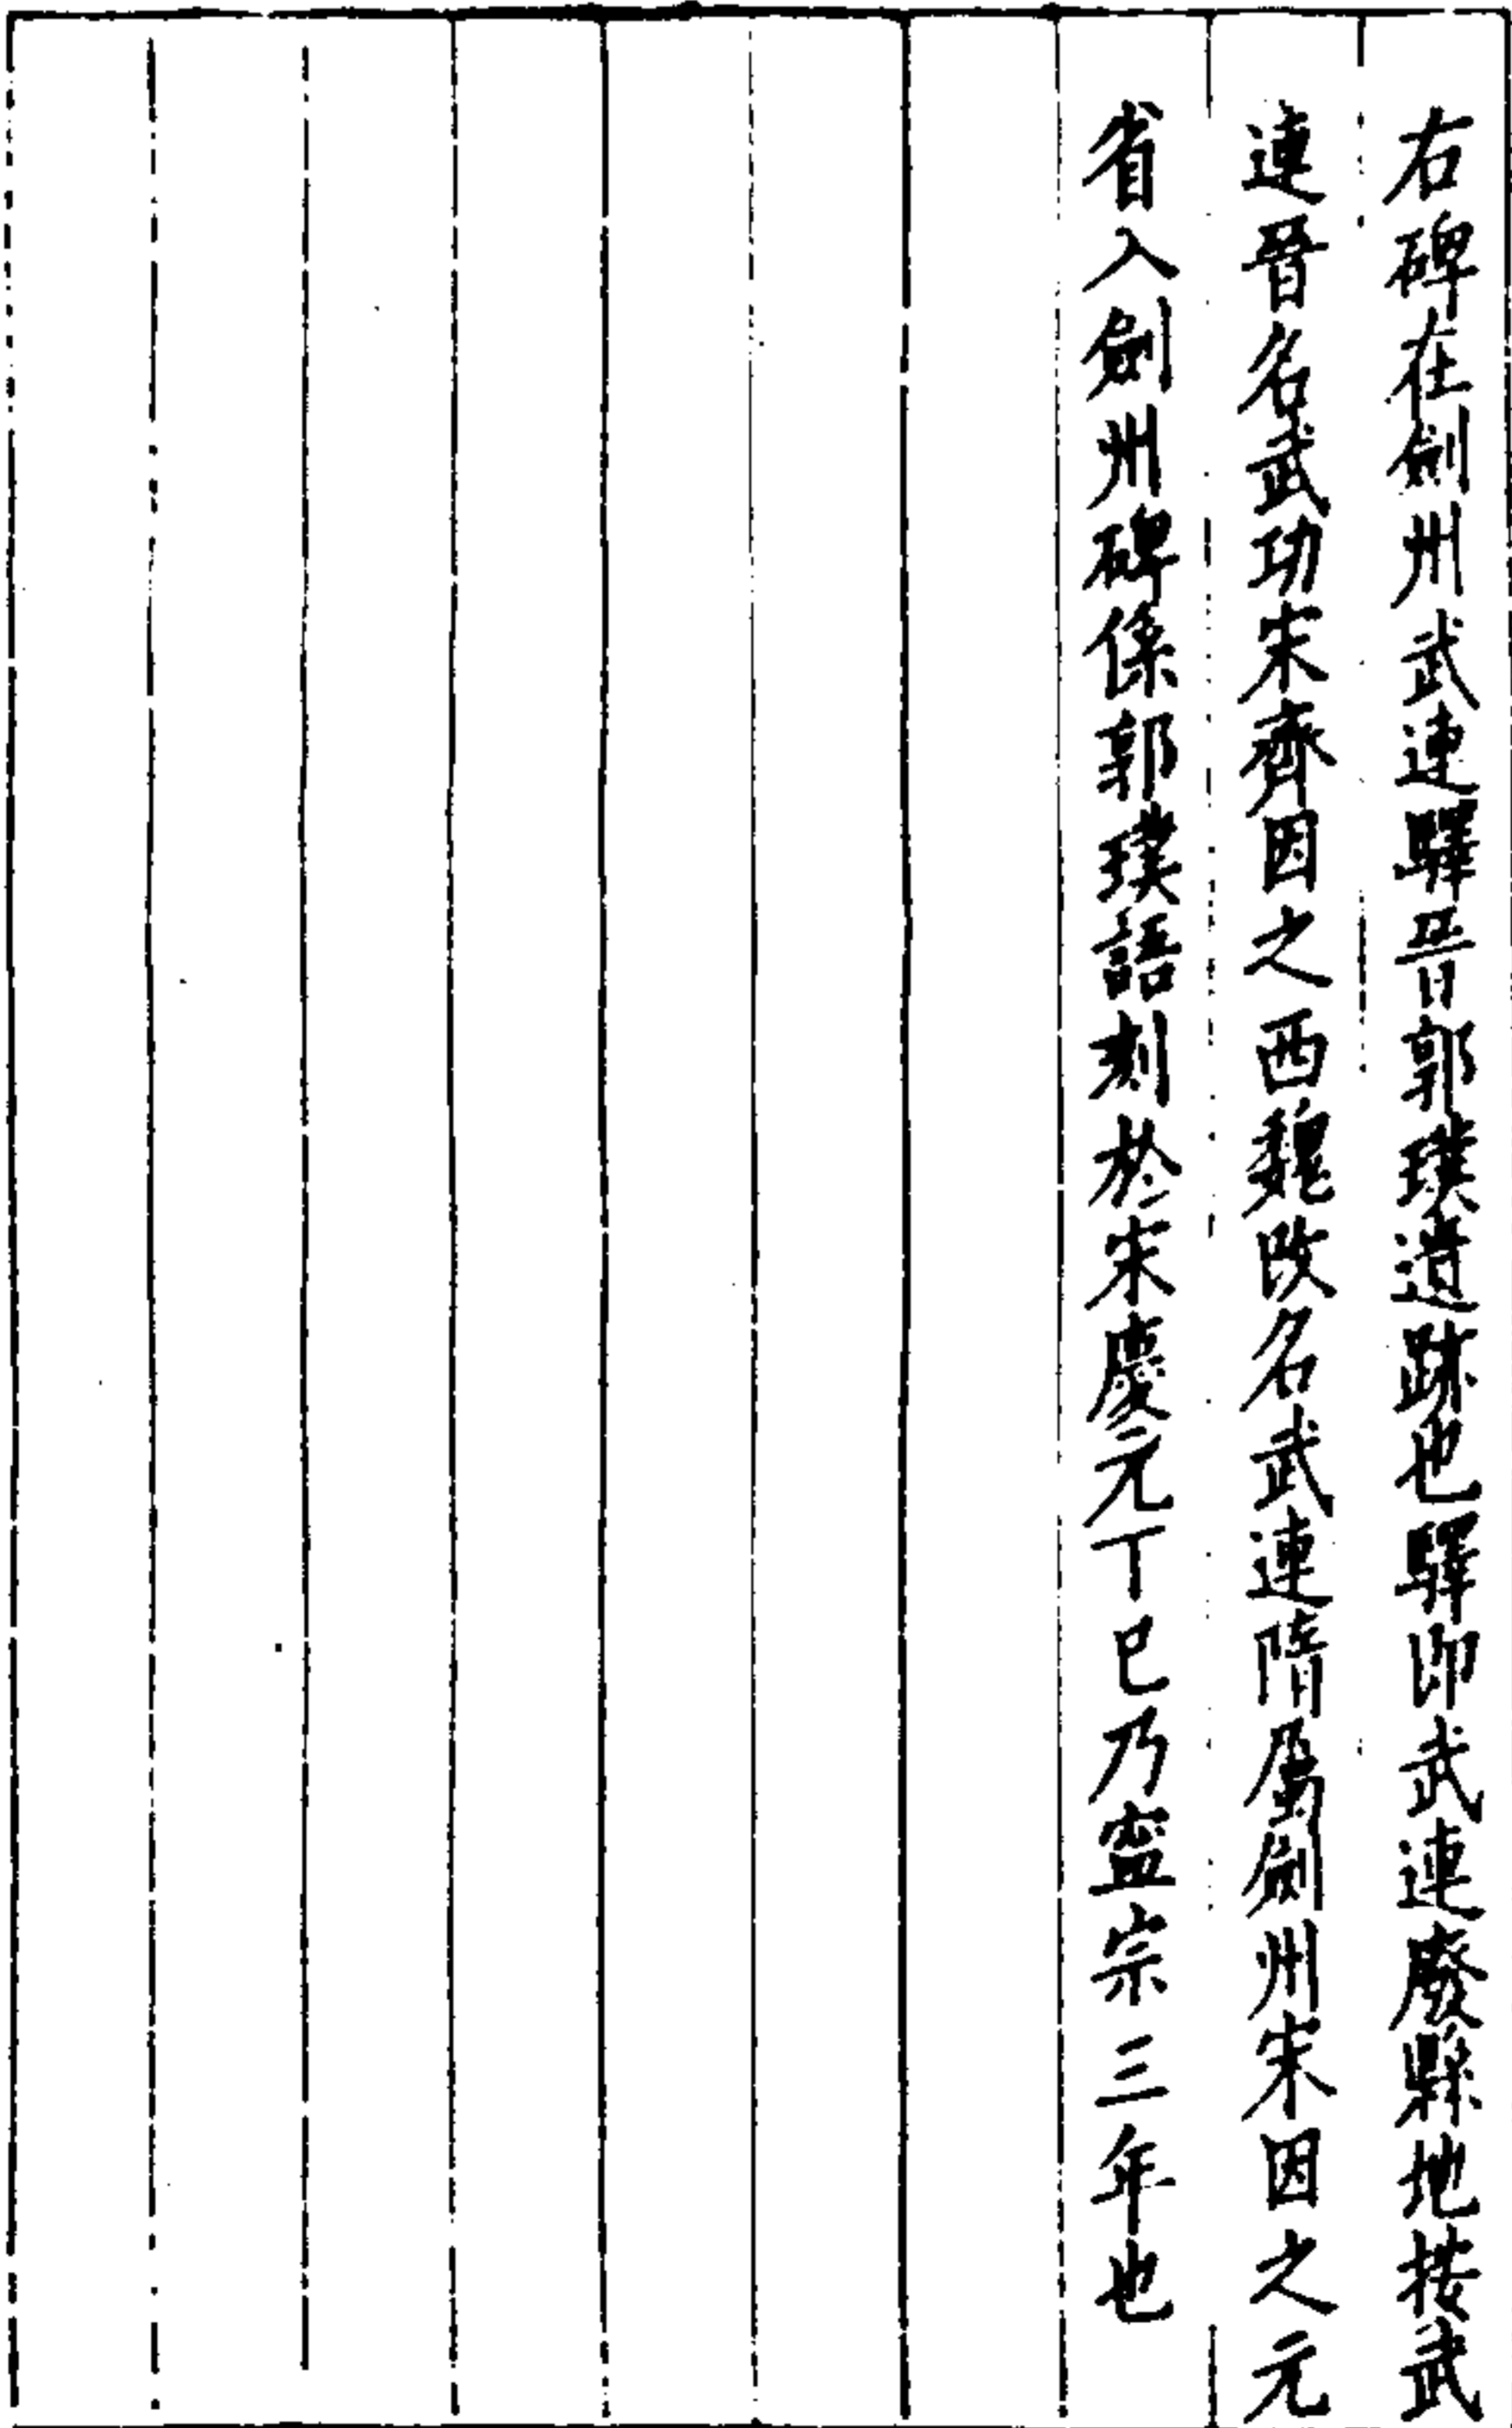 右碑在劍州武連驛晉郭璞遺跡也驛即武連廢縣地按武
連晉名武功宋齊因之西魏改名武連隋屬劍州宋因之元
省入劍州碑係郭璞語刻於宋慶元丁巳乃寧宗三年也